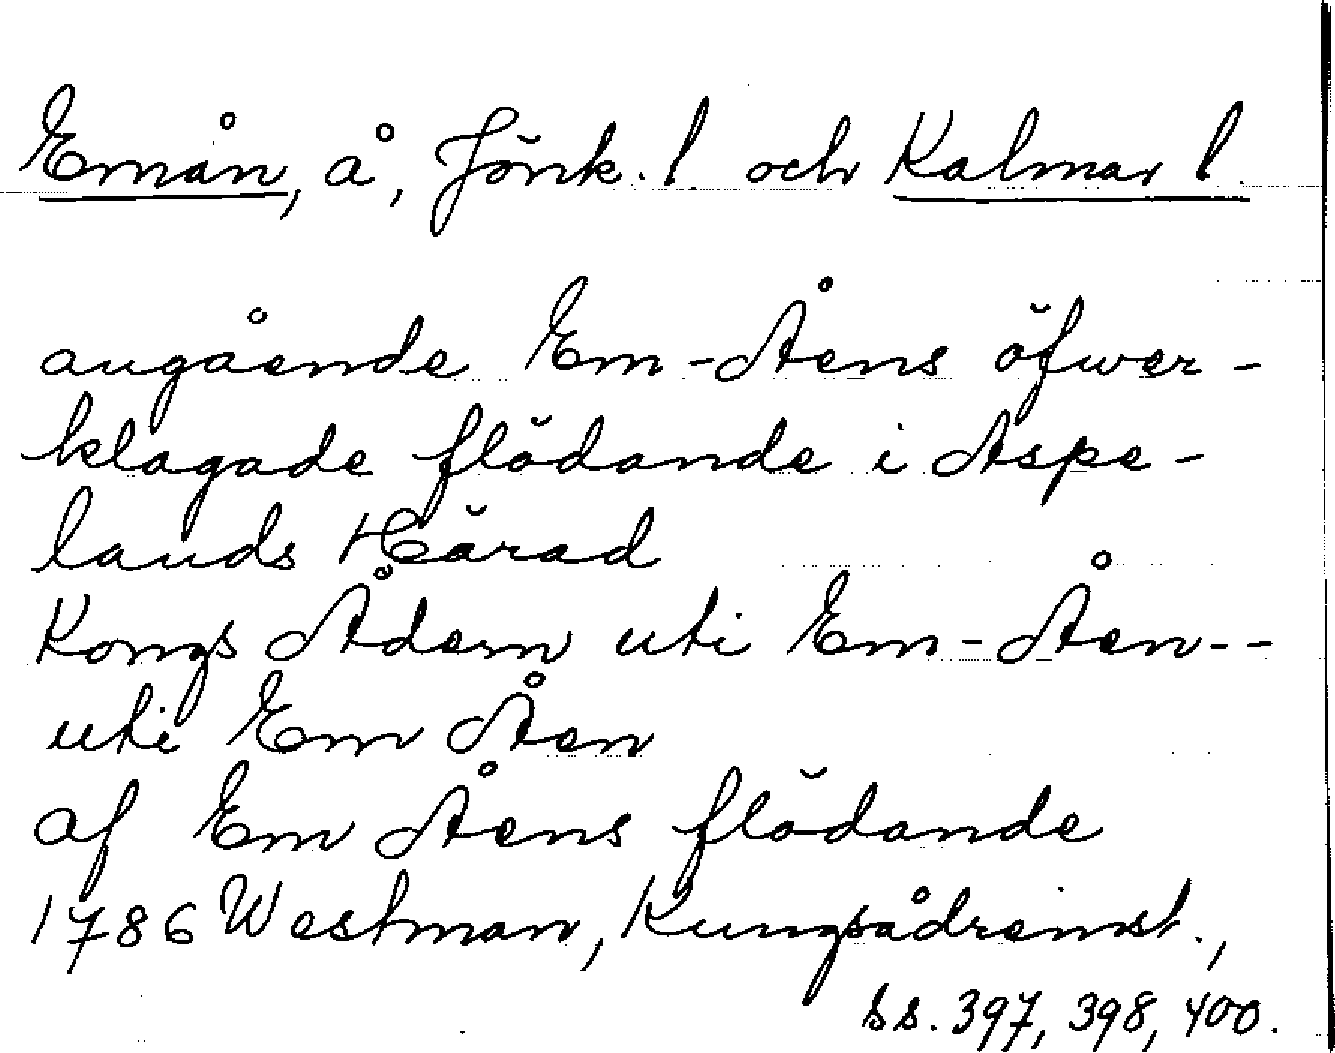 Emån, å, Jönk. l. och Kalmar l.
angående Em-Åens öfwer-
klagade flödande i Aspe-
lands Härad
Kongs Ådern uti Em-Åen--
uti Em Åen
af Em Åens flödande
1786 Westman, Kungsådreinst.,
ss. 397, 398, 400.